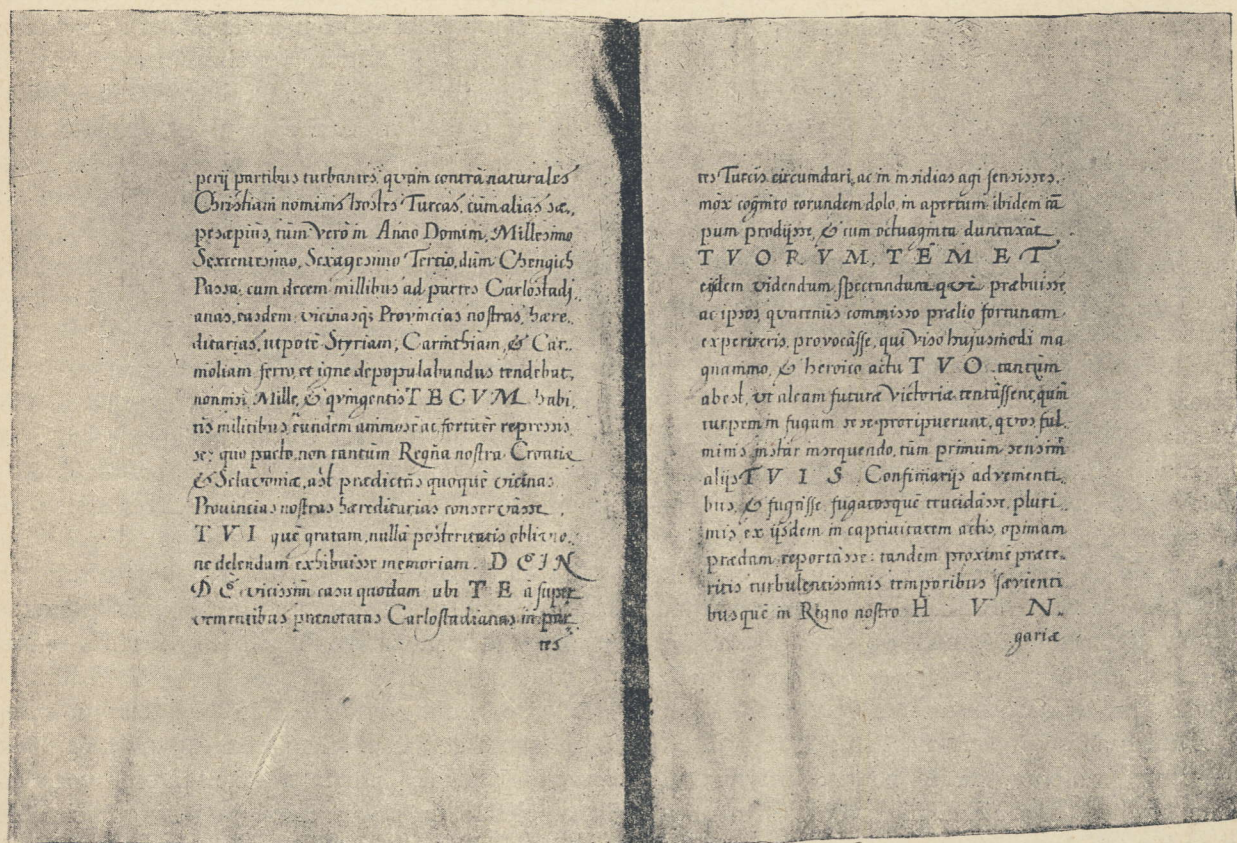 perij partibus turbantes, quàm contrà naturales
Christiani nominis hostes Turcas, cùm alias sæ..
pesæpiùs, tùm Verò in Anno Domini, Millesimo
Sexcentesimo, Sexagesimo Tertio, dùm Chengich
Passa, cum decem millibus ad partes Carlostadi
anas, easdem vicinasq; Provincias nostras, hære..
ditarias, utpotè Styriam, Carinthiam, & Car..
nioliam ferro, et igne depopulabundus tendebat,
nonnisi Mille, & quingentis TECVM habi
tis militibus, eundem animosè ac fortitèr repressis
se; quo pacto, non tantùm Regna nostra Croatiæ
& Sclavoniæ, ast prædictas quoquè vicinas
Provincias nostras hæreditarias conservâsse
TVI què gratam, nullâ posteritatis oblivio..
ne delendam exhibuisse memoriam. DEIN
DE vicissìm casu quodam ubi TE à super
venientibus prænotatas Carlostadianas in par
tes
tes Turcis circumdari, ac in insidias agi sensisses,
mòx cognito eorundem dolo, in apertum ibidem cã
pum prodijsse, & cum octuaginta duntaxàt
TVORVM, TEMET
eisdem videndum spectandumque præbuisse
ac ipsos, quatenùs commisso prælio fortunam
experireris, provocâsse, qui Viso hujusmodi ma
gnanimo, & heroico actu TVO tantùm
abest, ut aleam futuræ Victoriæ tentâssent, quin
turpem in fugam sese proripuerunt, quos ful
minis instar insequendo, tùm primùm sensìm
alijs TVIS Confiniarijs advenienti..
bus, & fugâsse, fugatosquè trucidâsse, pluri
mis ex ijsdem in captivitatem actis, opimam
prædam reportâsse: tandem proximè præte..
ritis turbulentissimis temporibus sævienti
busquè in Regno nostro HVN..
gariæ